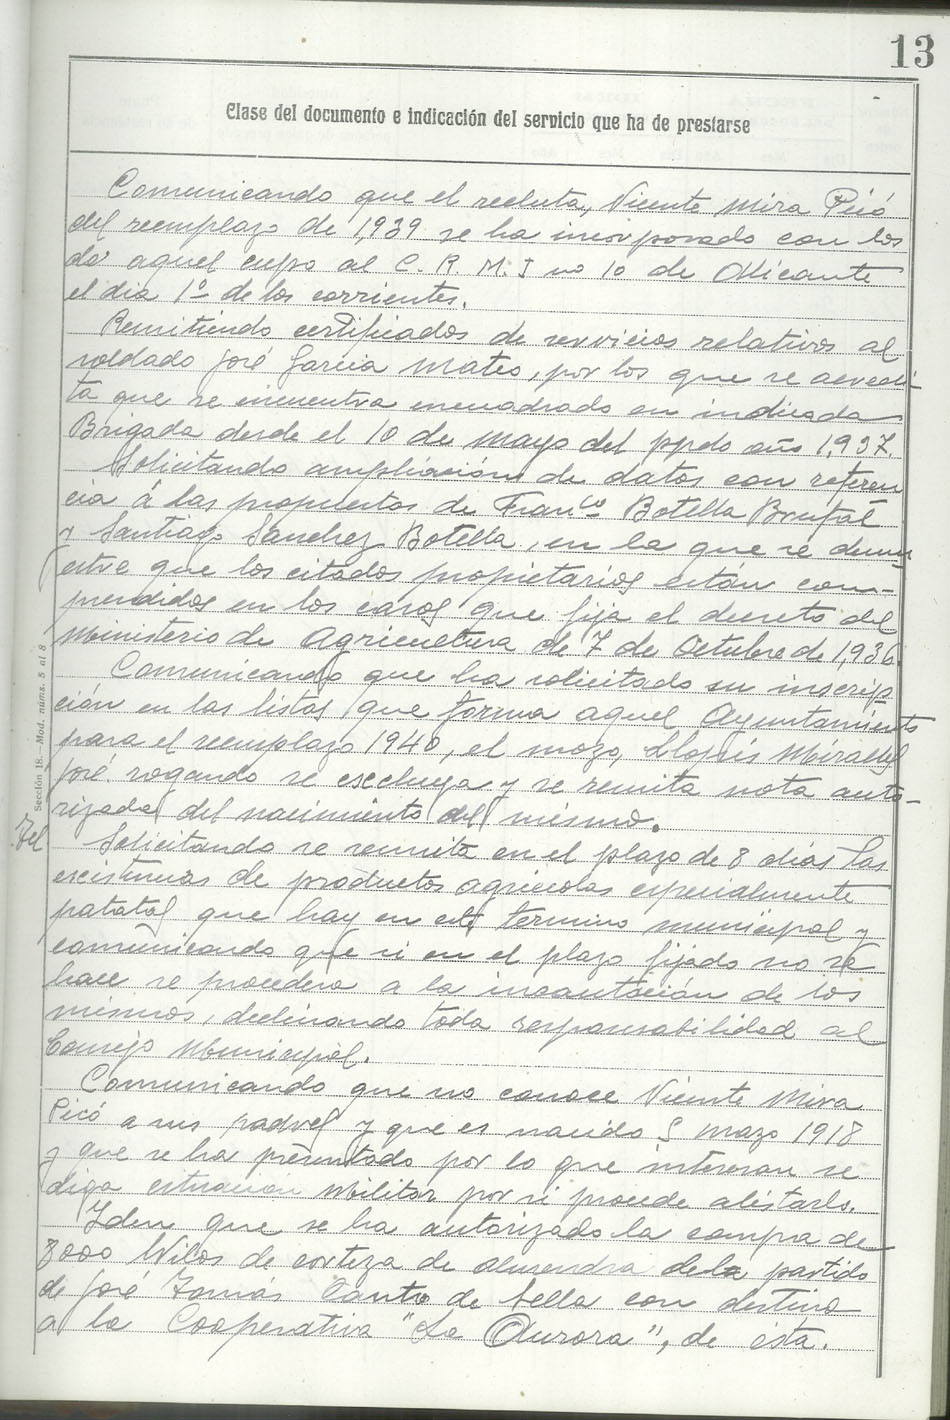 13
Clase del documento e indicación del servicio que ha de prestarse
Comunicando que el recluta, Vicente Mira Picó
del reemplazo de 1,939 se ha incorporado con los
de aquel cupo al C. R. M. I nº 10 de Alicante
el dia 1º de los corrientes.
Remitiendo certificados de servicios relativos al
soldado José Garcia Mateo, por los que se acredi
ta que se encuentra encuadrado en indicada
Brigada desde el 10 de Mayo del ppdo año 1,937.
Solicitando ampliación de datos con referen
cia á las propuestas de Franco Botella Brufal
y Santiago Sanchez Botella, en la que se demu
estre que los citados propietarios están com-
prendidos en los casos que fija el decreto del
Ministerio de Agricultura de 7 de Octubre de 1,936.
Comunicando que ha solicitado su inscrip
ción en las listas que forma aquel Ayuntamiento
para el reemplazo 1940, el mozo, Llopis Miralles
José rogando se escluya y se remita nota auto-
rizada del nacimiento del mismo.
Tel
Solicitando se remita en el plazo de 8 dias las
escistencias de productos agricolas especialmente
patatas que hay en este termino municipal y
comunicando que si en el plazo fijado no se
hace se procedera a la incautación de los
mismos, declinando toda responsabilidad al
Consejo Municipal.
Comunicando que no conoce Vicente Mira
Picó a sus padres y que es nacido 5 marzo 1918
y que se ha presentado por lo que interesan se
diga situacion militar por si procede alistarlo.
Iden que se ha autorizado la compra de
8000 Kilos de corteza de almendra de la partida
de José Tomás Cantó de Sella con destino
a la Cooperativa "La Aurora", de ésta.
Sección 18.—Mod. núms. 5 al 8